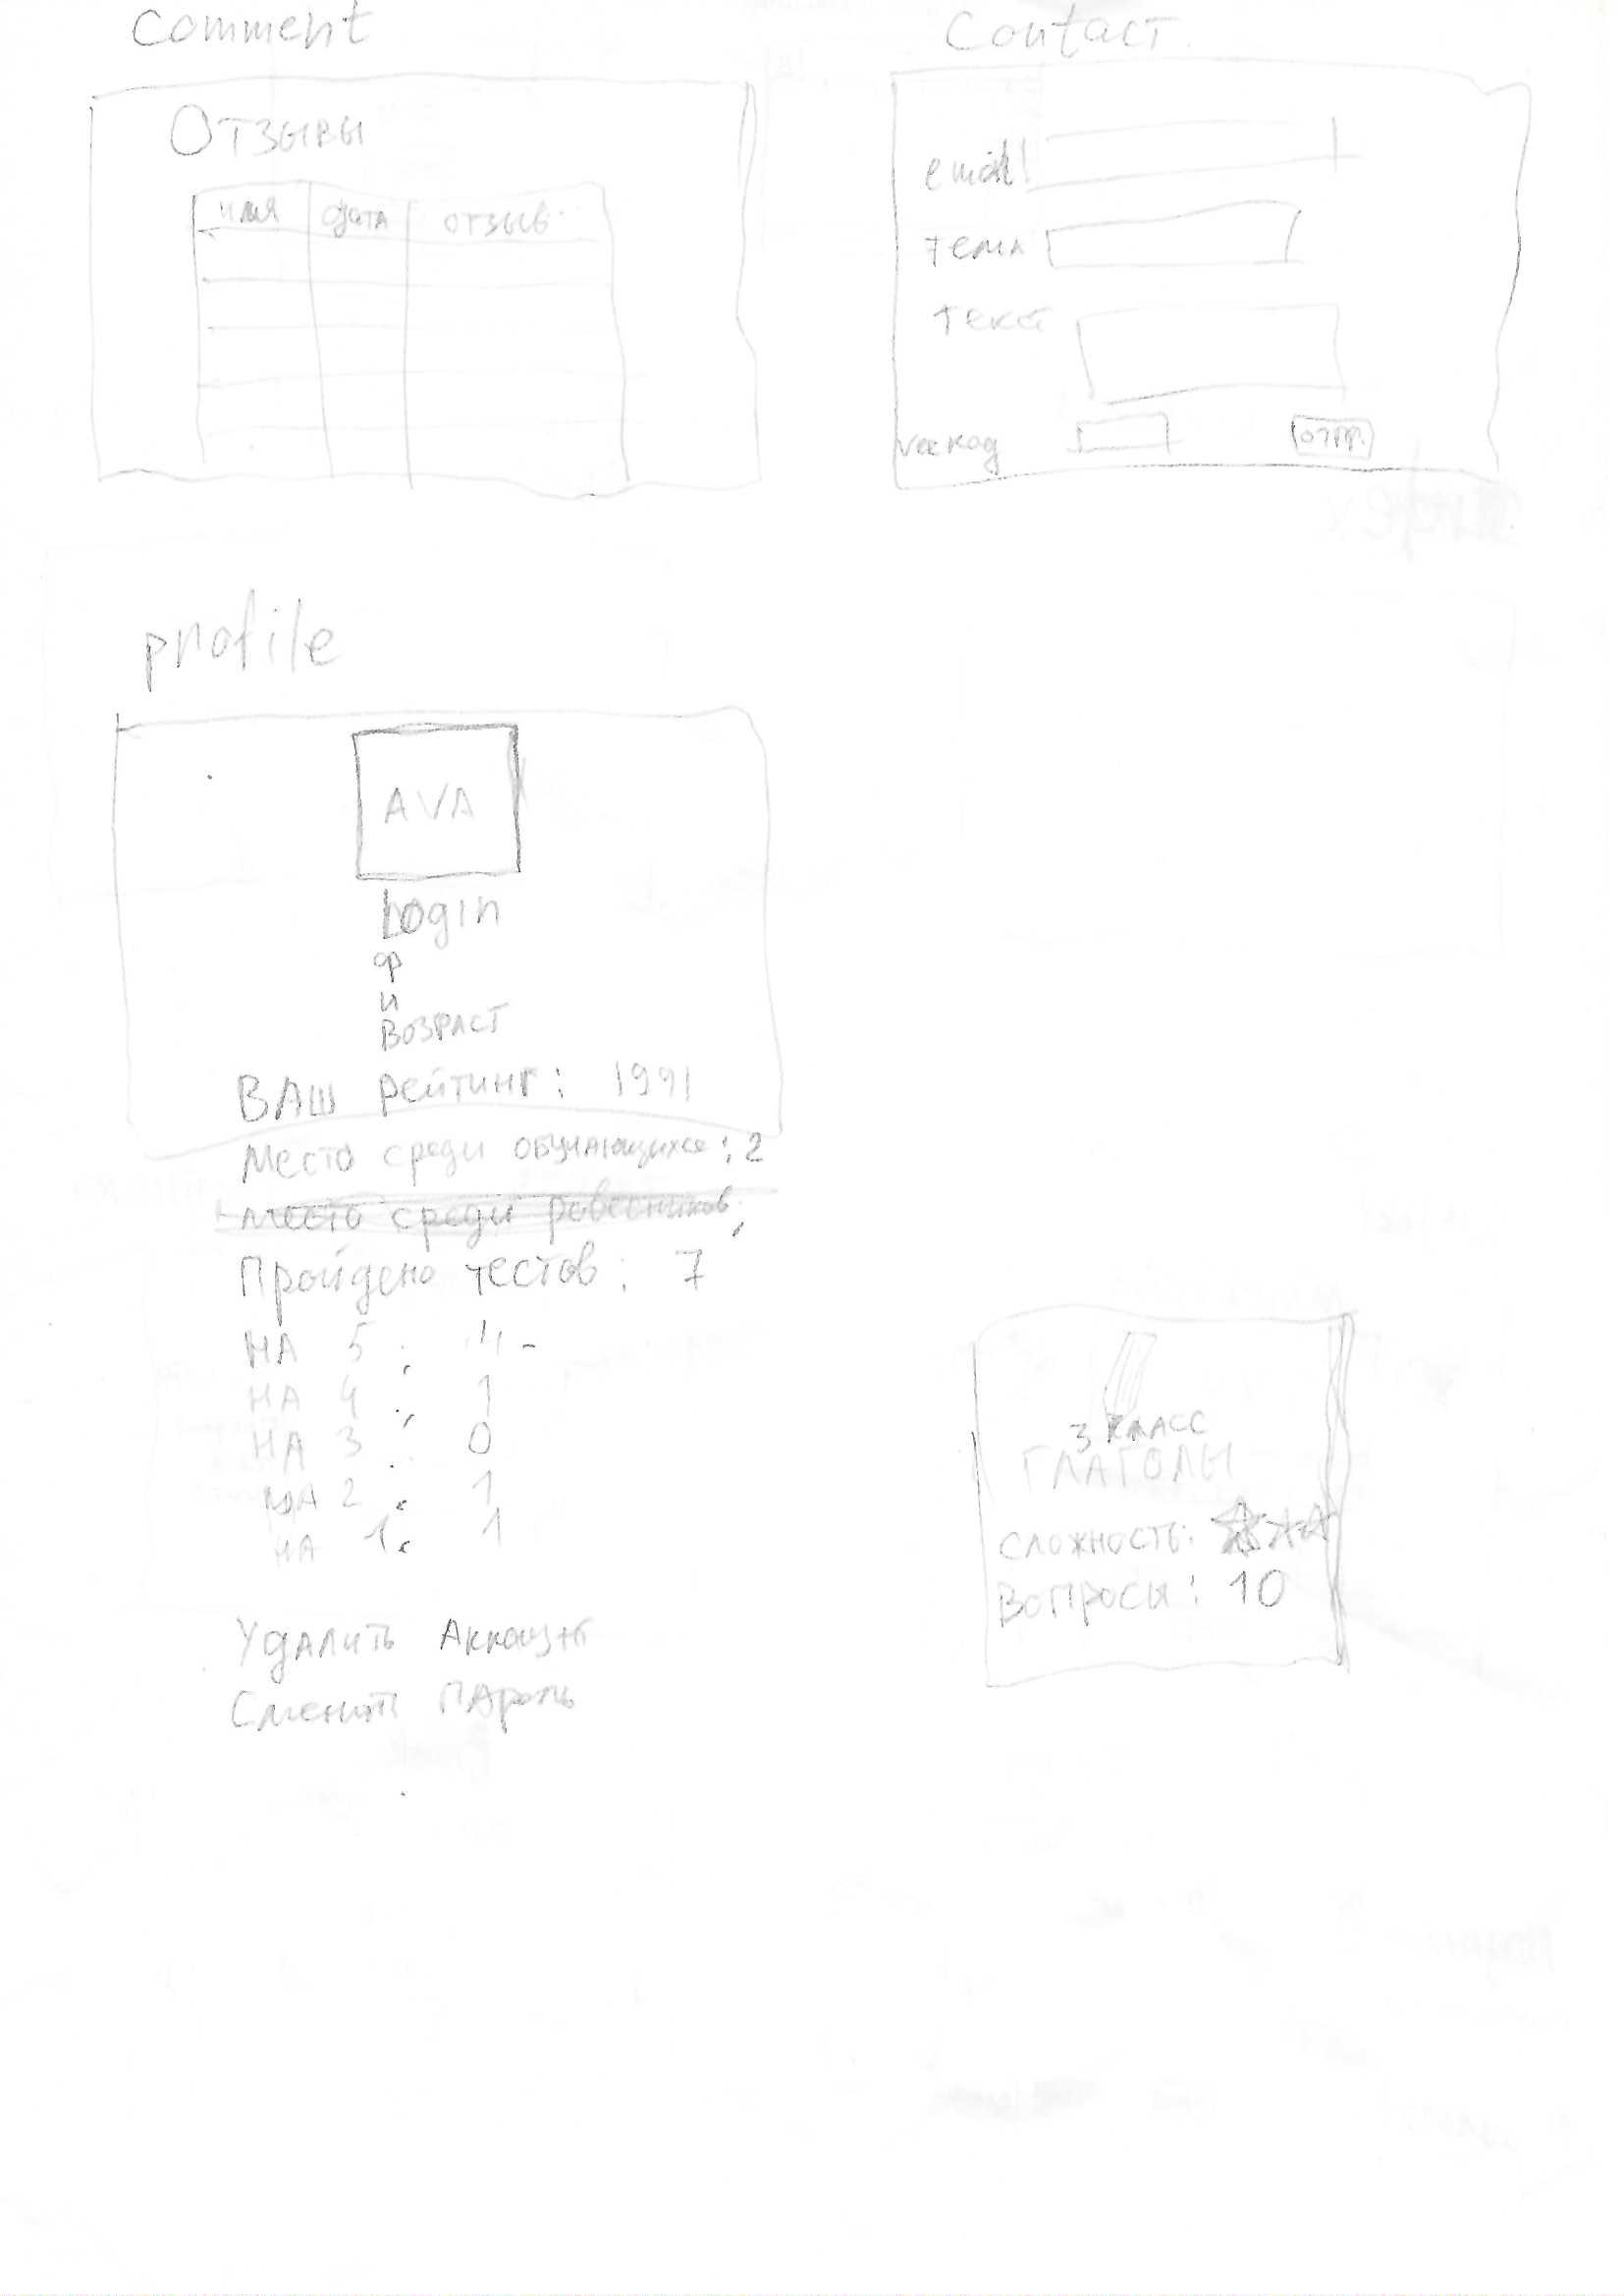 Comment
Отзывы
имя дата отзыв
Contact
email
тема
текст
отпр.
profile
AVA
Login
ф
и
Возраст
Ваш рейтинг: 1991
Место среди обучающихся: 2
место среди ровесников:
Пройдено тестов: 7
НА 5: 4
НА 4: 1
НА 3: 0
НА 2: 1
НА 1: 1
Удалить Аккаунт
Сменить Пароль
3 класс
ГЛАГОЛЫ
сложность:
Вопросы: 10